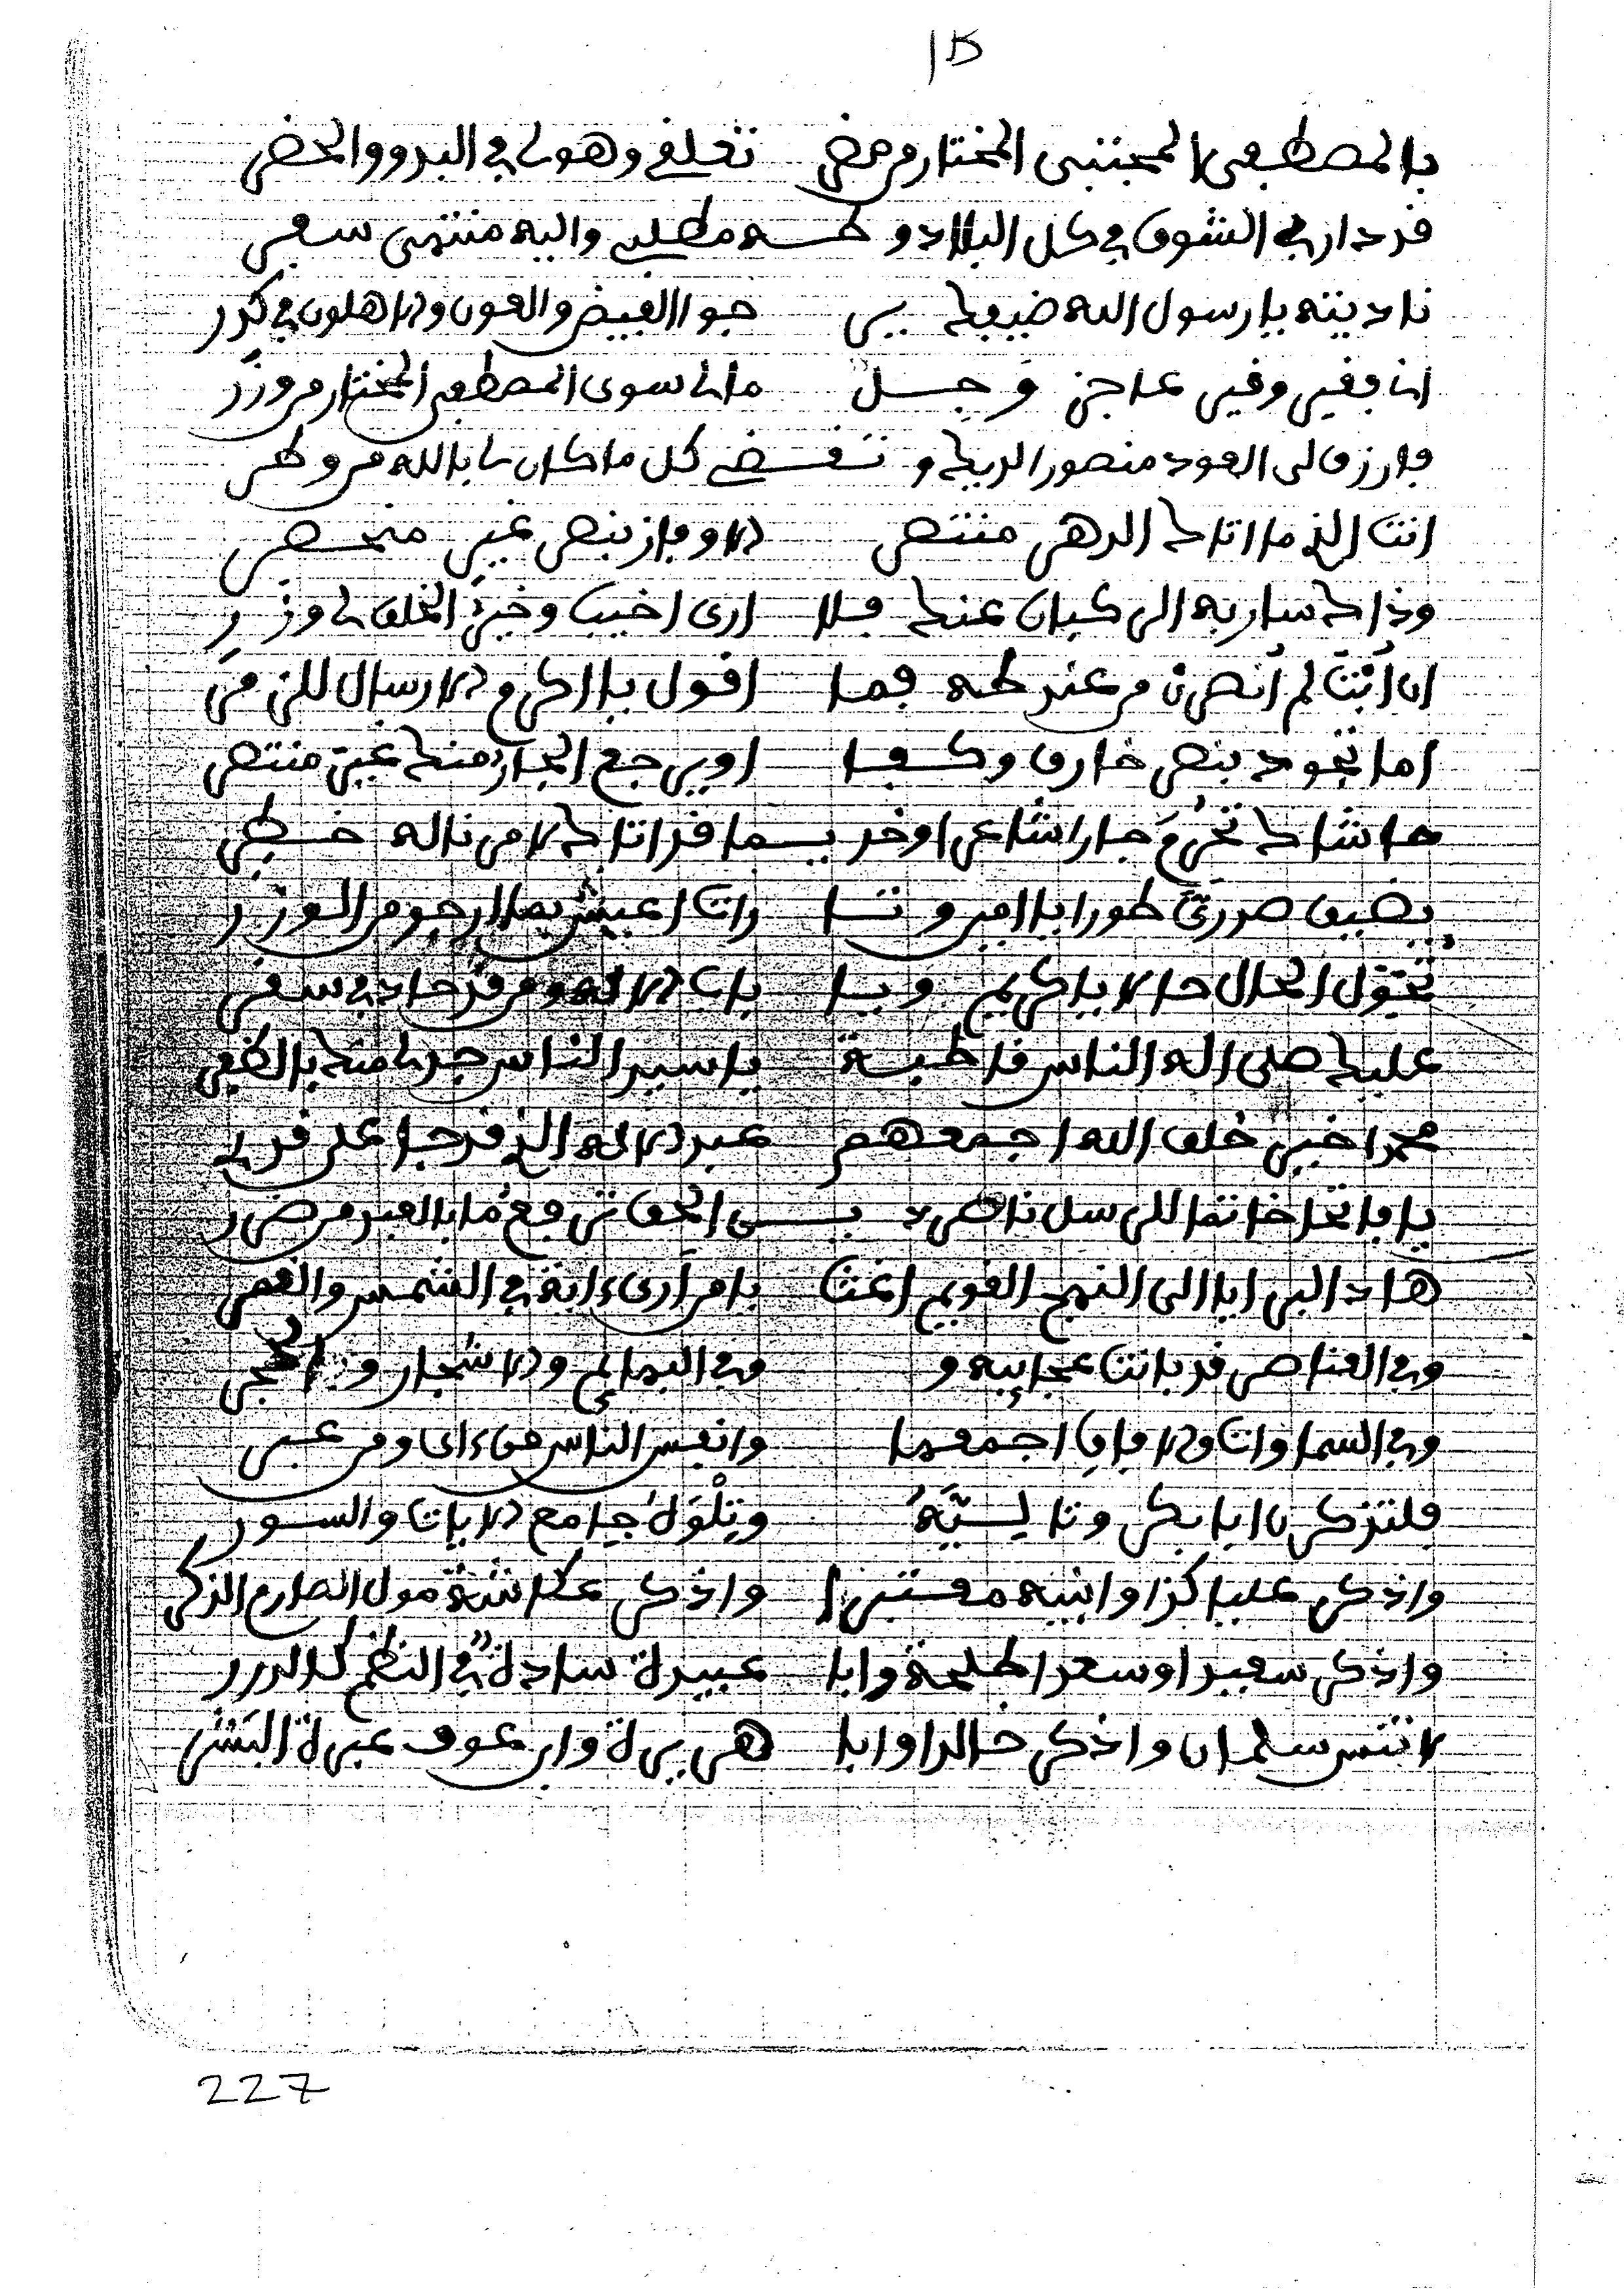 15
بالمصطفى المجتبى المختار من مضر تعلقي وهو لي في البدو والحضر
قد دار بي الشوق في كل البلاد و طه مطلبي واليه منتهى سفري
ناديته يا رسول الله ضيفك يرجوا الفيض والعون والاهلون في كدر
انا فقير وقير عاجز وجل مالي سوى المصطفى المختار من وزر
فارزق لي العود منصور اليك و تقضي كل ما كان لي بالله من وطر
انت الذي ما اتاك الدهر منتصر الا وفاز بنصر غير منحصر
وذاك سار به الركبان عنك فلا ارى اخيب وخير الخلق لي وزر
ان أبت لم أنصرن من عند طه فما اقول يا اكرم الارسال للزمر
اما تجود بنصر خارق وكفا او يرجع الجار منك غير منتصر
حاشاك تحرم جارا شاعرا وخديما قد اتاك لامر ناله خطر
يضيق صدري طورا يا امين وتارات اعيش بما ارجو من الوزر
تحول الحال حالا يا كريم ويا باب الاله ومن قد جاد في سفر
عليك صلى اله الناس قاطبة يا سيد الناس جد لي منك بالظفر
محمدا خير خلق الله اجمعهم عبد الاله الذي قد جا على قدر
يا فاتحا خاتما للرسل ناصر دين الحق ترفع ما بالعبد من ضرر
هاد البرايا الى النهج القويم اغث يا من ارى ءاية في الشمس والقمر
وفي العناصر قد بانت عجايبه و في البهايم والاشجار والحجر
وفي السماوات والافاق اجمعها وانفس الناس من ءات ومن غبر
فلتذكرن ابا بكر وتاليَيَهُ وتِلْوَهُ جامع الايات والسور
واذكر عليا كذا وابنيه مفتخرا واذكر عكاشة مول الصارم الذكر
واذكر سعيدا وسعدا طلحة وابا عبيدة سادة في النظم كالدرر
لا تنس سلمان واذكر خالدا وابا هريرة وابن عوف عبرة البَشَر
227